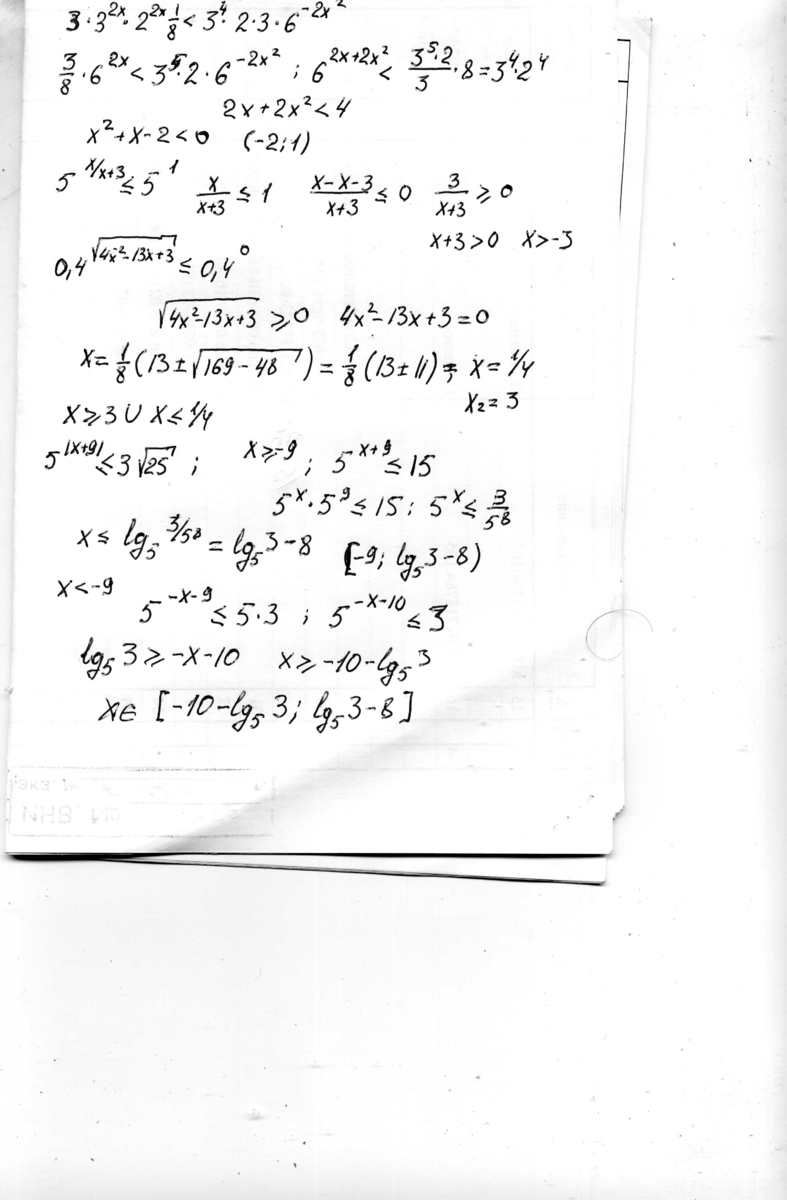 3·3^2x·2^2x 1/8 < 3^4·2·3·6^-2x^2
3/8·6^2x < 3^5·2·6^-2x^2 ; 6^2x+2x^2 < 3^5·2/3·8=3^4·2^4
2x+2x^2<4
x^2+x-2<0 (-2;1)
5^x/x+3 ≤ 5^1 x/x+3 ≤ 1 x-x-3/x+3 ≤ 0 3/x+3 ≥ 0
x+3>0 x>-3
0,4^√4x^2-13x+3 ≤ 0,4^0
√4x^2-13x+3 ≥ 0 4x^2-13x+3=0
x=1/8(13±√169-48)=1/8(13±11)= ; x=1/4
x2=3
x≥3 U x≤1/4
5^|x+9| ≤ 3√25 ; x≥-9 ; 5^x+9 ≤ 15
5^x·5^9 ≤ 15; 5^x ≤ 3/5^8
x ≤ lg5 3/5^8 = lg5 3-8 [-9; lg5 3-8)
x<-9
5^-x-9 ≤ 5·3 ; 5^-x-10 ≤ 3
lg5 3 ≥ -x-10 x ≥ -10-lg5 3
x∈ [-10-lg5 3; lg5 3-8]
экз №
ИНВ. №